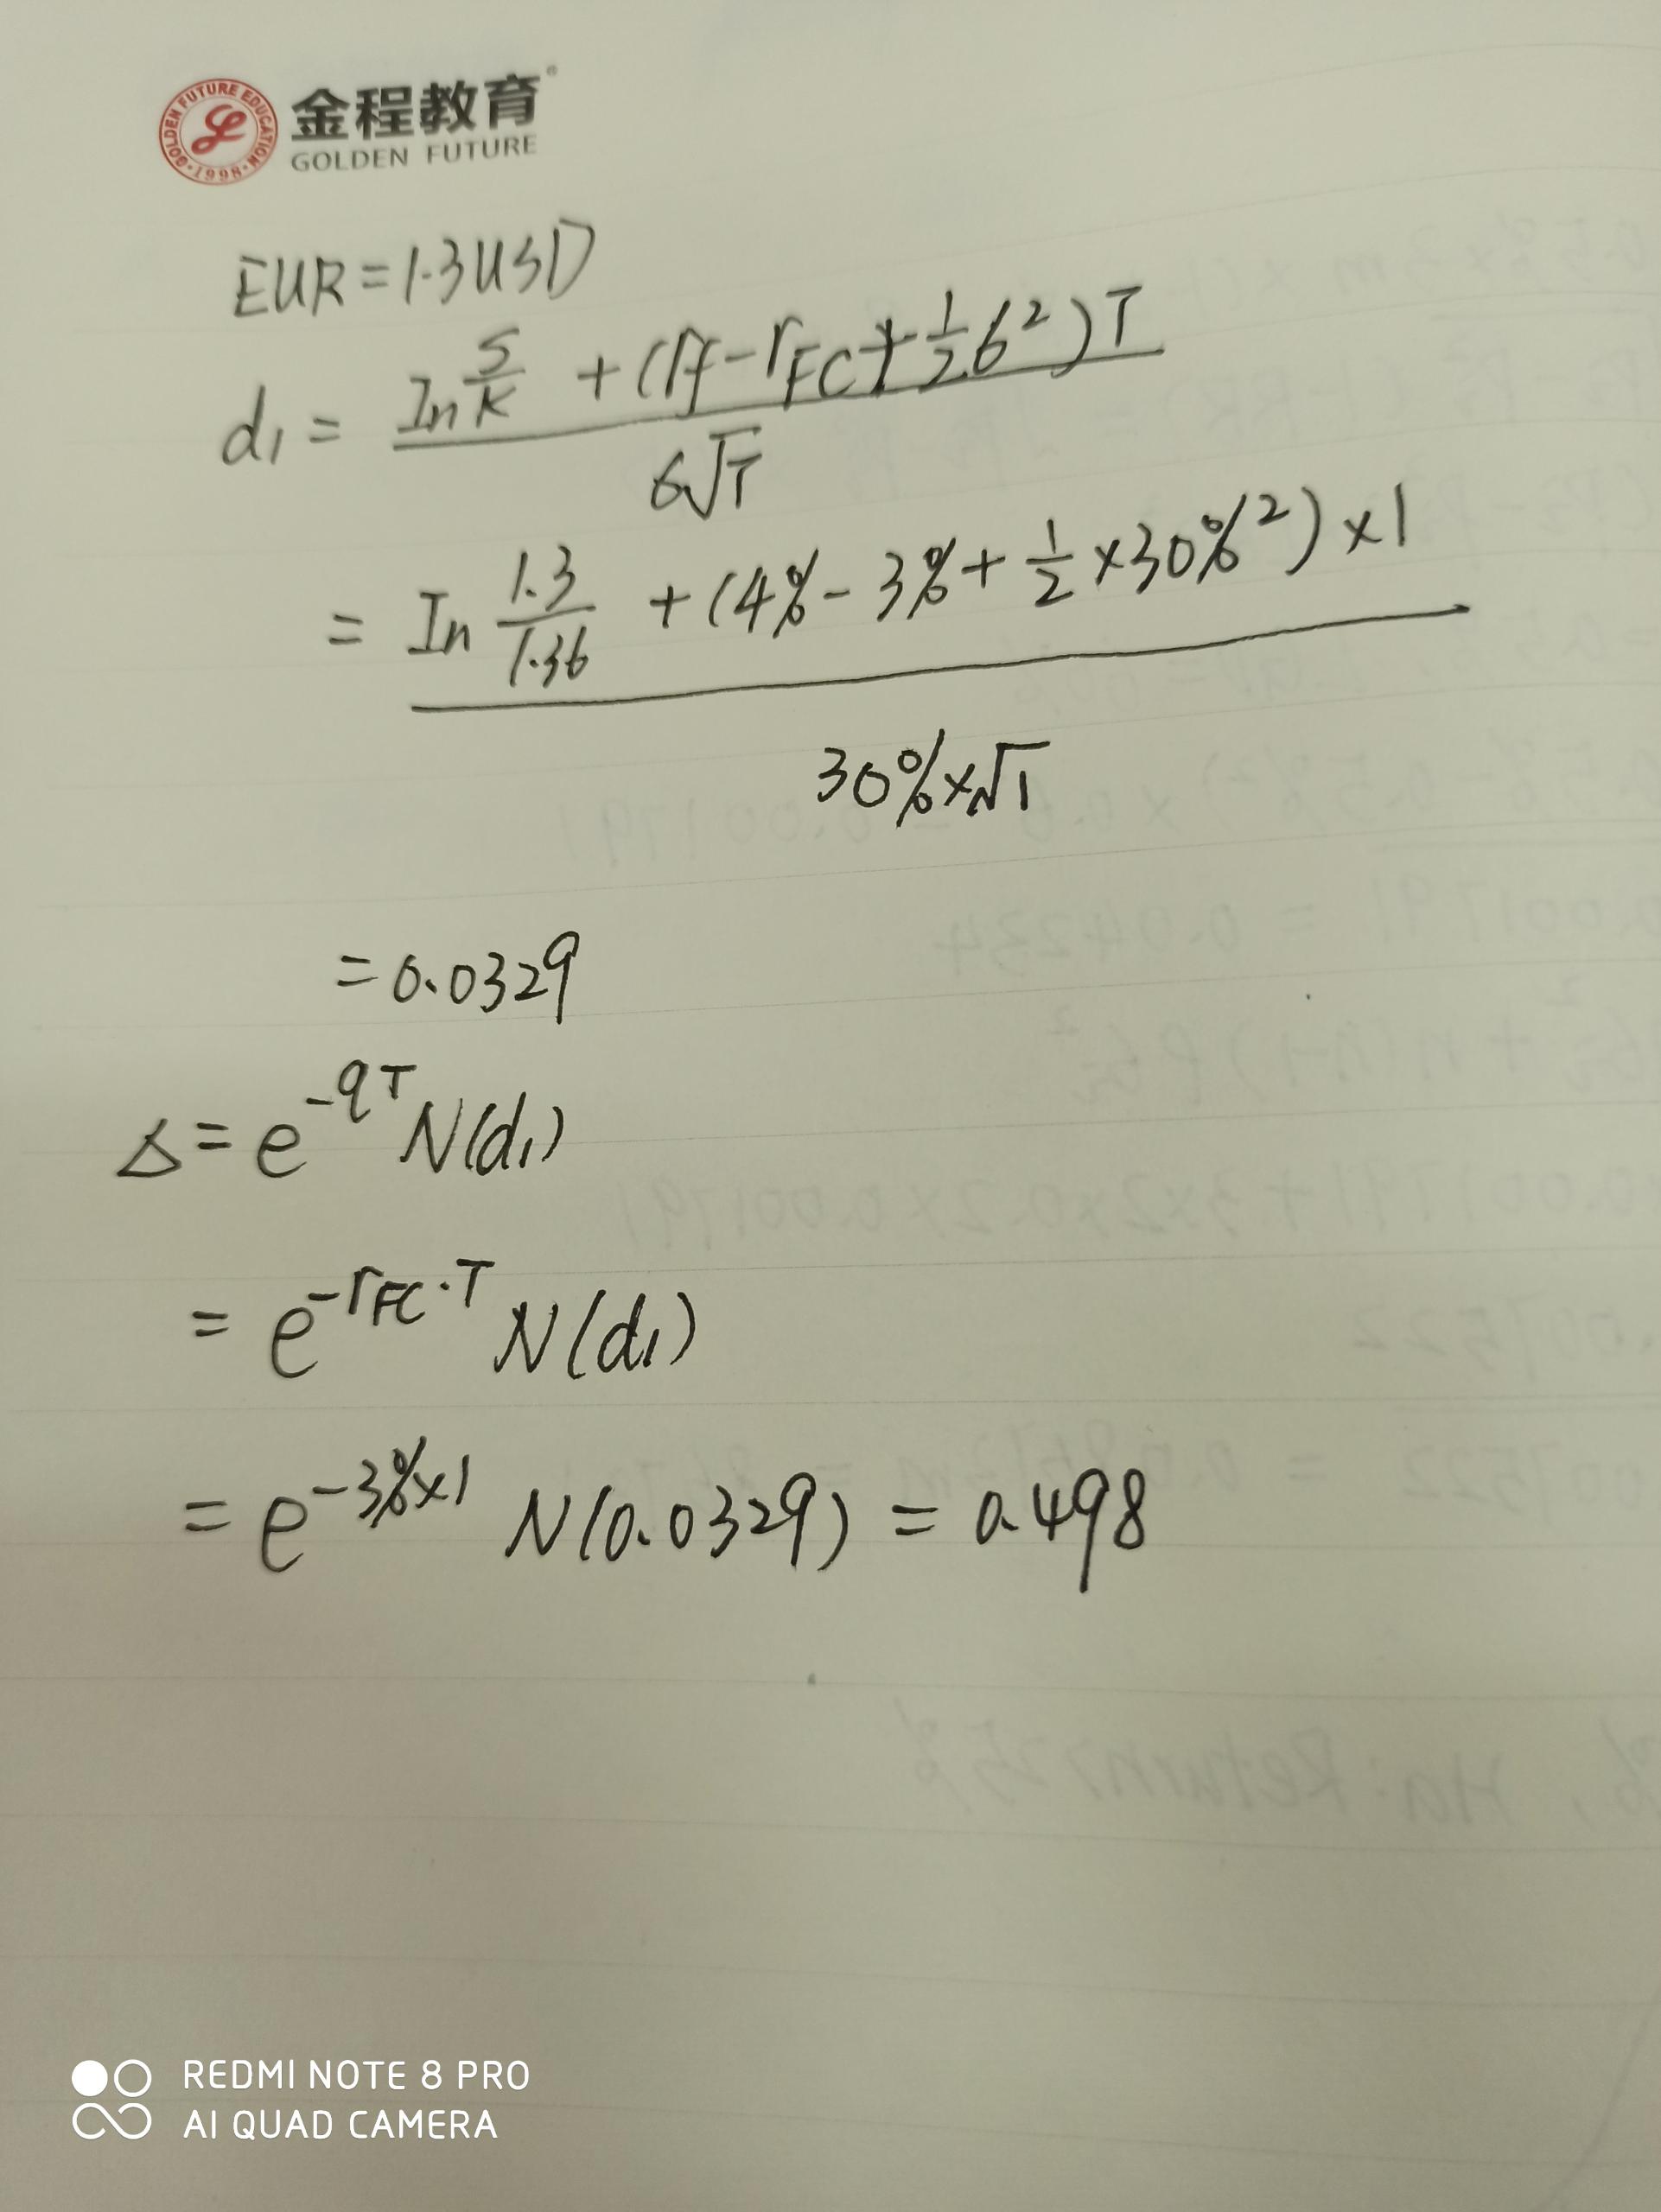 GOLDEN FUTURE EDUCATION
·1998·
金程教育®
GOLDEN FUTURE
EUR=1.3USD
d₁ = (ln S/K + (rf - rFC + 1/2 6²)T) / 6√T
= (ln 1.3/1.36 + (4% - 3% + 1/2 ×30%²)×1) / 30%×√1
= 0.0329
Δ = e^-qT N(d₁)
= e^-rFC·T N(d₁)
= e^-3%×1 N(0.0329) = 0.498
REDMI NOTE 8 PRO
AI QUAD CAMERA